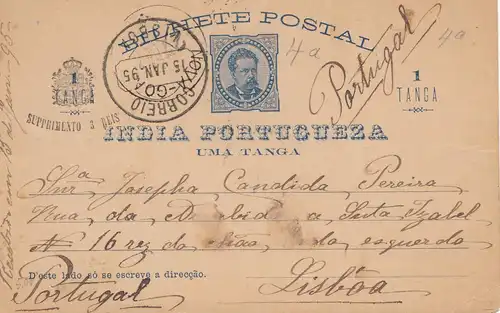 BILHETE POSTAL
4a
4a
Portugal
1
TANGA
CORREIO
NOVA-GOA
15 JAN. 95
1
TANGA
SUPPRIMENTO 3 REIS
INDIA PORTUGUEZA
UMA TANGA
Snrª Josepha Candida Pereira
Rua da a Santa Izabel
Nº 16 rez do chão, do esquerdo
D'este lado só se escreve a direcção.
Lisbôa
Portugal